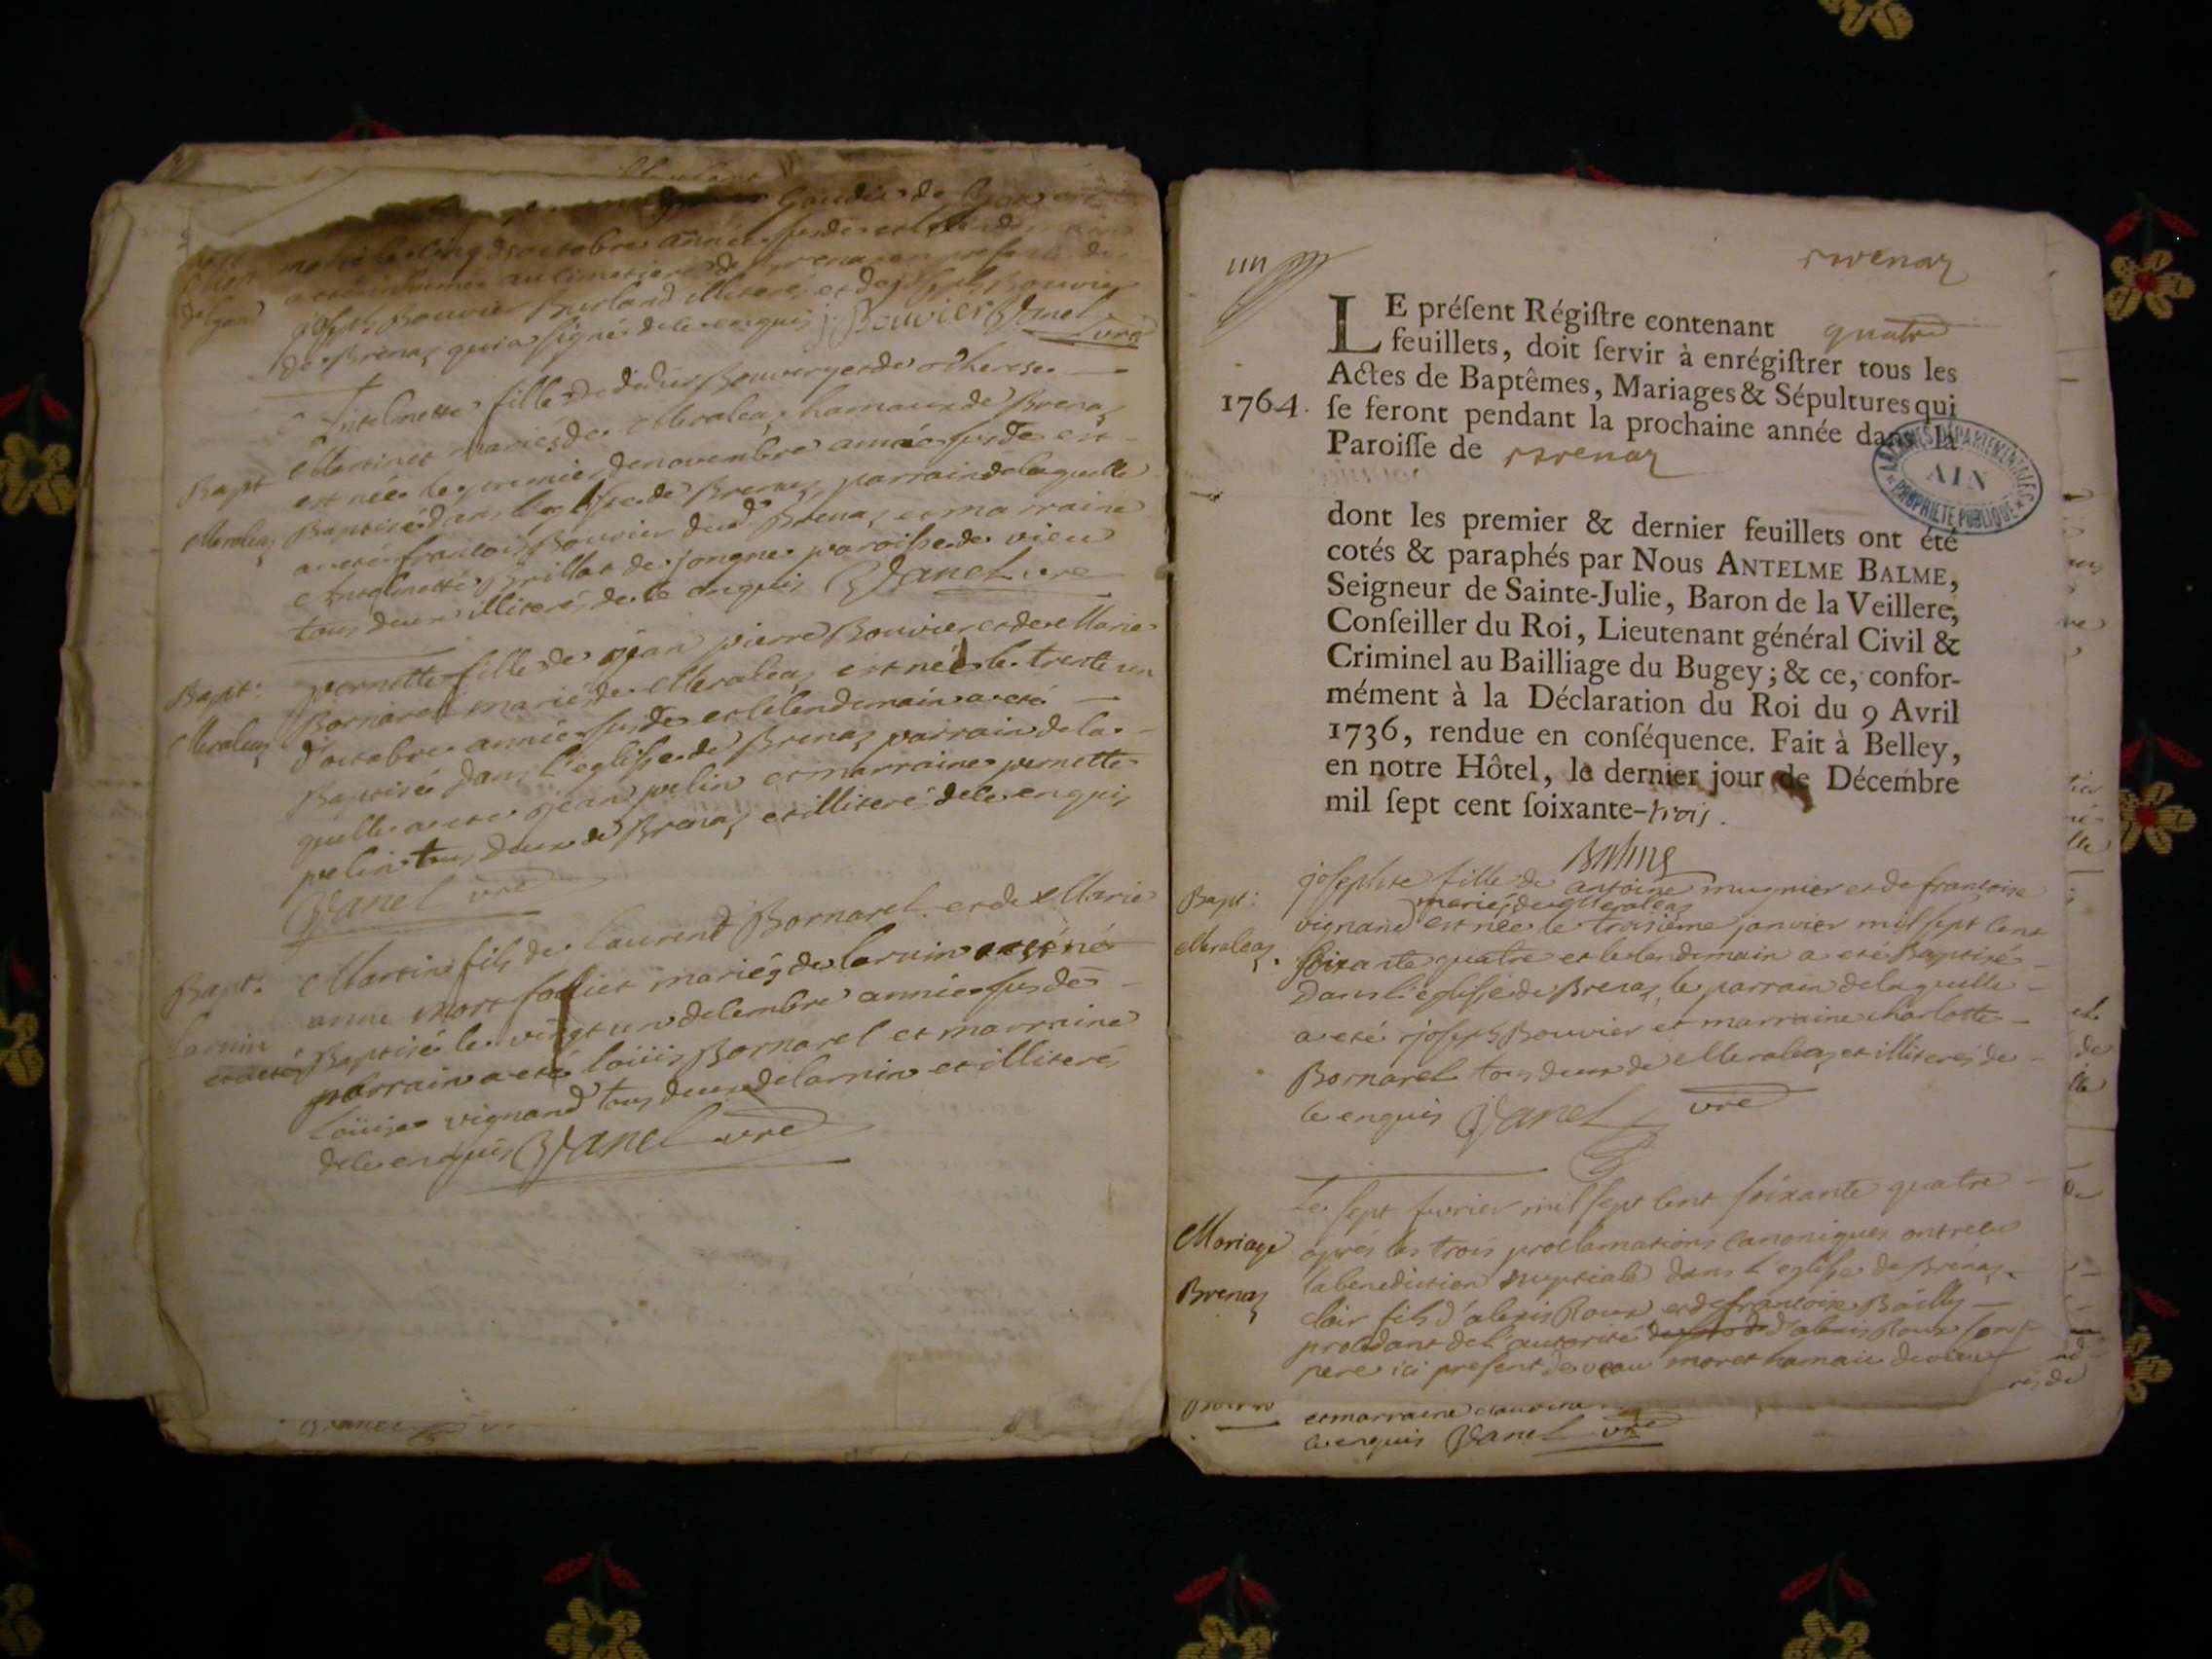 mort le cinq d'octobre année susde et le lendemain
a eté inhumée au cimetiere de Brenaz en presence de
joseph Bouvier Burland illiteré et de joseph Bouvier
de Brenaz qui a signé de ce enquis j: Bouvier Janel vre
Antelmette fille de didier Bouvery et de therese
Martinet mariés de Meraleaz hamaux de Brenaz
Bapt est née le premier de novembre année susde et
Meraleaz Baptisé dans l'eglise de Brenaz parrain de laquelle
a eté francois Bouvier dud. Brenaz et marraine
Antelmette Brillat de jongne paroisse de vieu
tous deux illiterés de ce enquis Janel vre
Bapt: pernette fille de jean pierre Bouvier et de Marie
Bornarel mariés de Meraleaz est née le trente un
Meraleaz d'octobre année susde et le lendemain a eté
Baptisé dans l'eglise de Brenaz parrain de la
quelle a eté jean pelin et marraine pernette
pelin tous deux de Brenaz et illiteré de ce enquis
Janel vre
Bapt: Martin fils de laurend Bornarel et de Marie
anne Mort follict mariés de laruin est né
laruin et a eté Baptisé le vingt un decembre année susde
parrain a eté loüis Bornarel et marraine
loüise vignand tous deux de laruin et illiterés
de ce enquis Janel vre
un
Brenaz
LE préſent Régiſtre contenant quatre
feuillets, doit ſervir à enrégiſtrer tous les
Actes de Baptêmes, Mariages & Sépultures qui
1764. ſe feront pendant la prochaine année dans la
Paroiſſe de Brenaz
ARCHIVES DÉPARTEMENTALES
AIN
PROPRIÉTÉ PUBLIQUE
dont les premier & dernier feuillets ont été
cotés & paraphés par Nous ANTELME BALME,
Seigneur de Sainte-Julie, Baron de la Veillere,
Conſeiller du Roi, Lieutenant général Civil &
Criminel au Bailliage du Bugey; & ce, confor-
mément à la Déclaration du Roi du 9 Avril
1736, rendue en conſéquence. Fait à Belley,
en notre Hôtel, le dernier jour de Décembre
mil ſept cent ſoixante-trois.
Balme
Bapt: josephte fille de antoine mugnier et de francoise
mariés de Meraleaz
vignand est née le troisieme janvier mil sept cent
Meraleaz. soixante quatre et le lendemain a eté Baptisé
dans l'eglise de Brenaz, le parrain de laquelle
a eté joseph Bouvier et marraine charlotte
Bornarel tous deux de Meraleaz et illiterés de
ce enquis Janel vre
Le sept fevrier mil sept cent soixante quatre
Mariage aprés les trois proclamations canoniques ont recu
la benediction nuptiale dans l'eglise de Brenaz
Brenaz clair fils d'alexis Roux et de francoise Bailly
procedant de l'autorité d'alexis Roux son
pere ici present de veau moret hamau de vieu
et marraine
ce enquis Janel vre